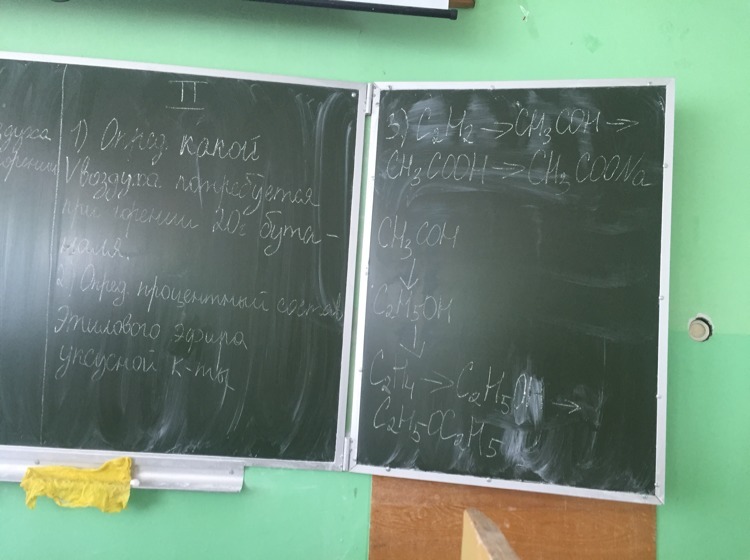 II
1) Опред. какой
V воздуха потребуется
при горении 20г бута-
наля.
2) Опред. процентный состав
этилового эфира
уксусной к-ты
3) C2H2 → CH3COH →
CH3COOH → CH3COONa
CH3COH
↓
C2H5OH
↓
C2H4 → C2H5OH →
C2H5OC2H5